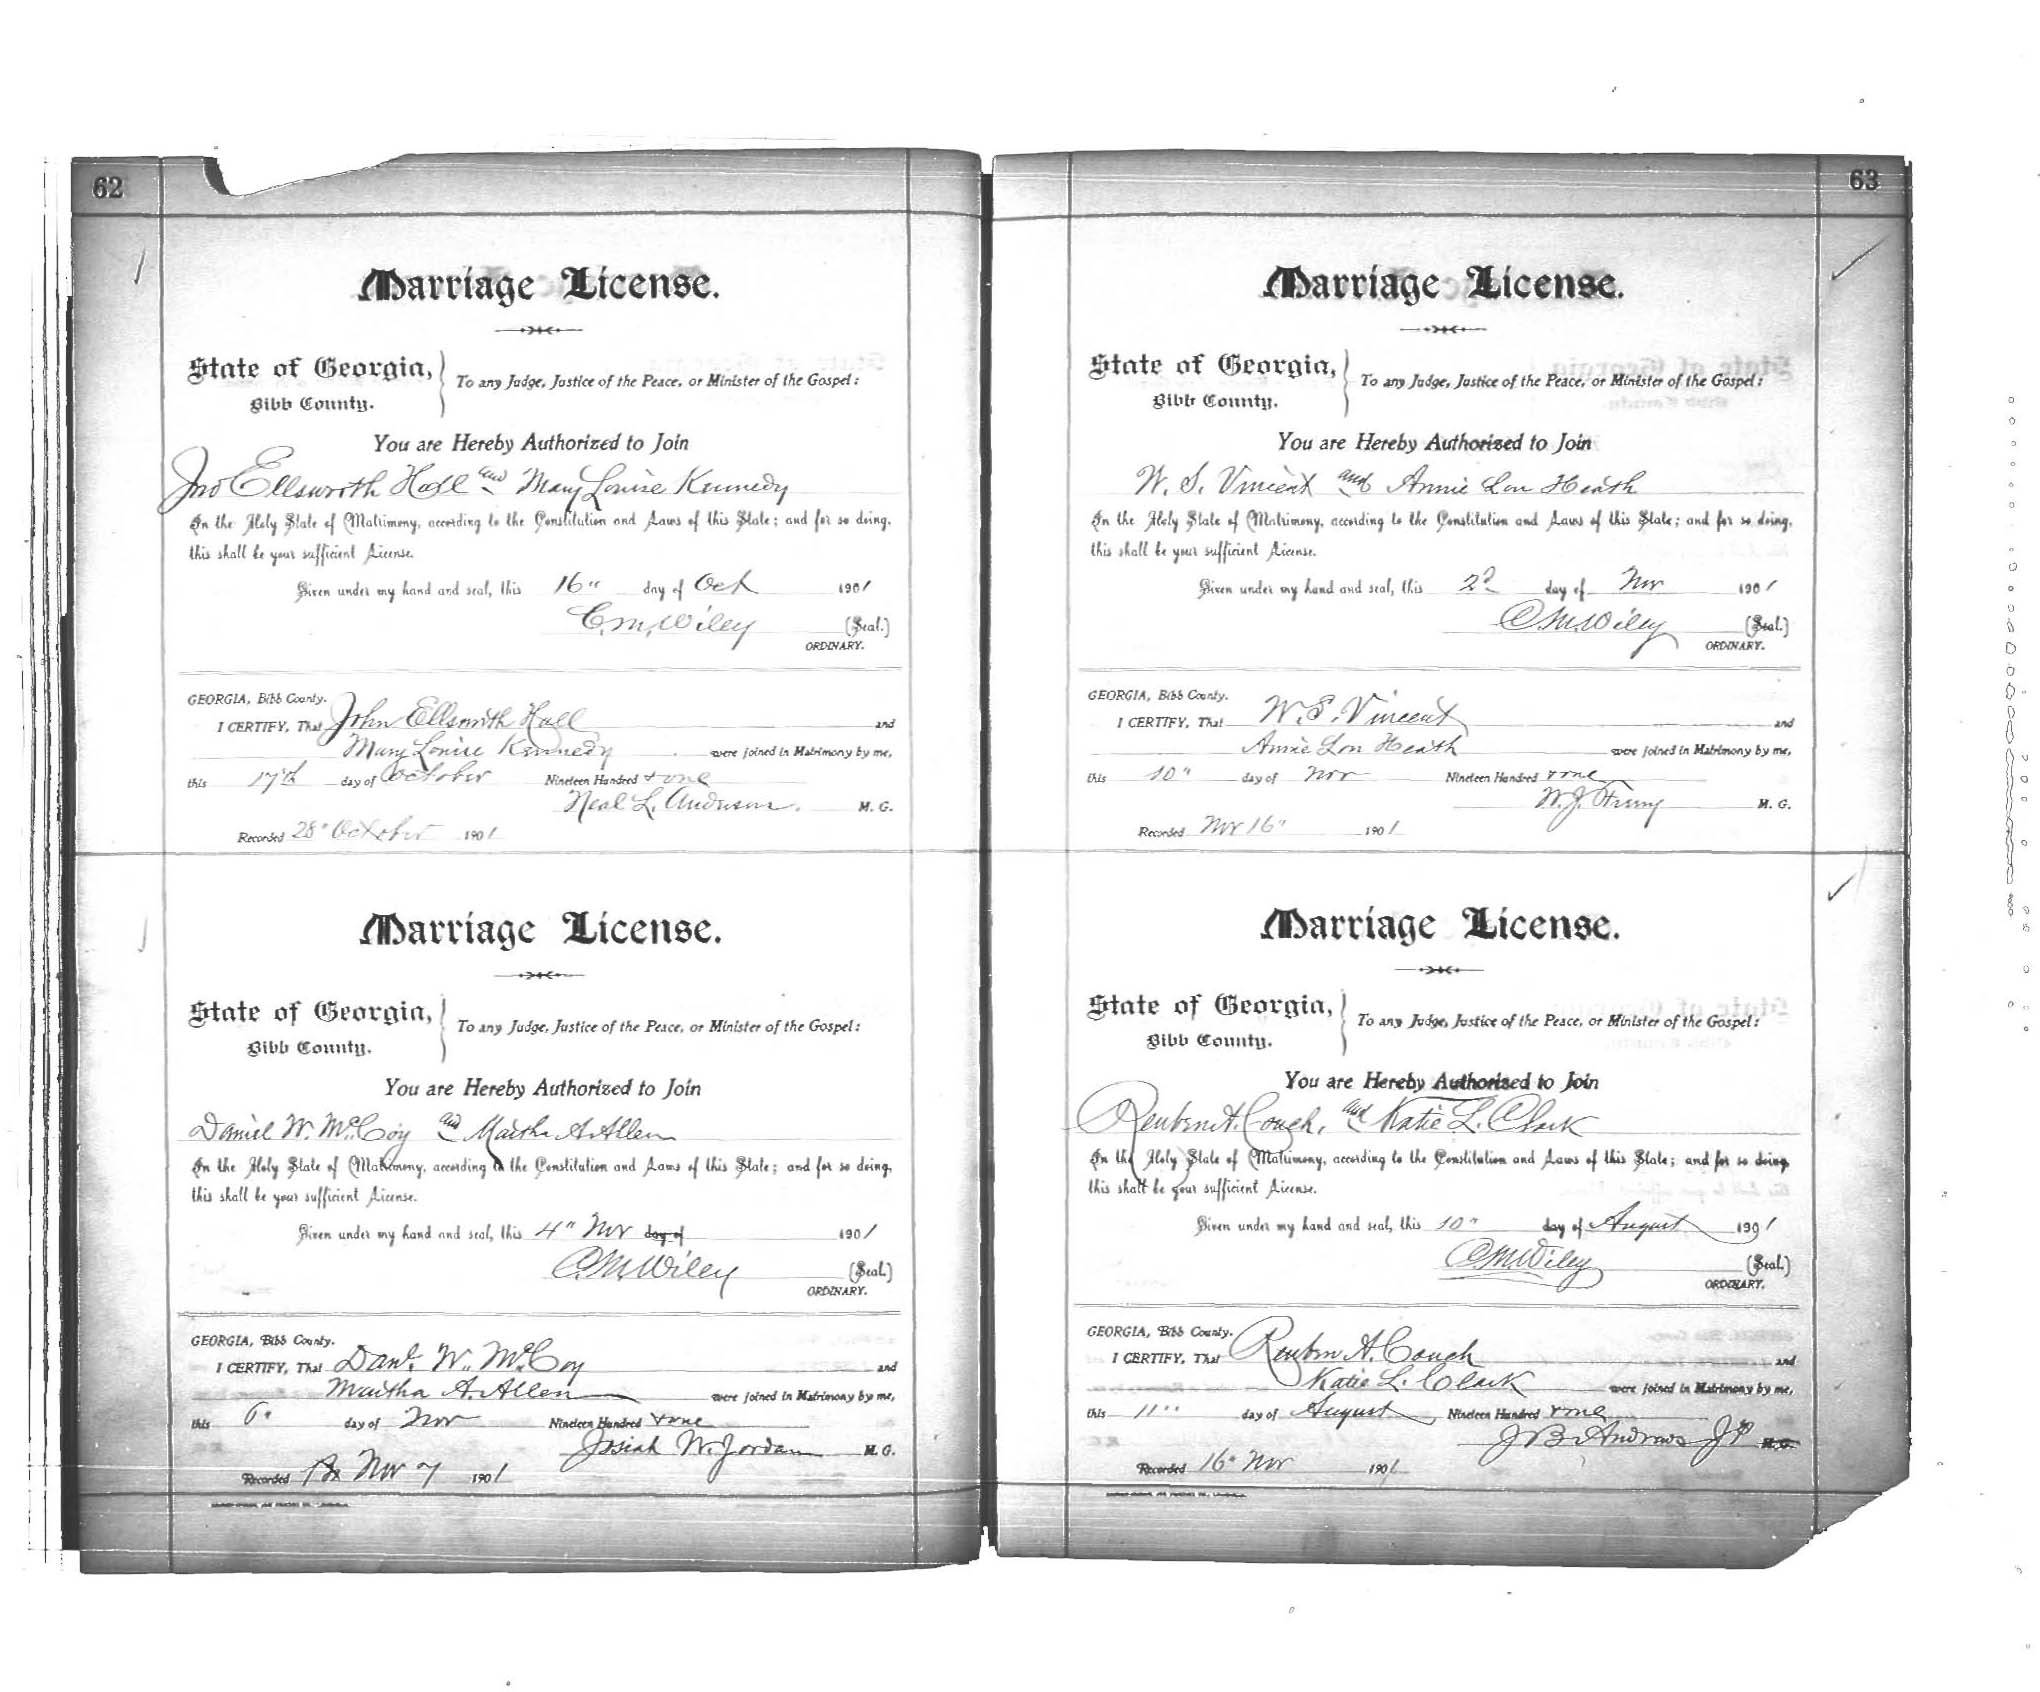 62
Marriage License.
State of Georgia,
Bibb County.
To any Judge, Justice of the Peace, or Minister of the Gospel:
You are Hereby Authorized to Join
Jno Ellsworth Hall and Mary Louise Kennedy
In the Holy State of Matrimony, according to the Constitution and Laws of this State; and for so doing,
this shall be your sufficient License.
Given under my hand and seal, this 16" day of Oct 1901
C. M. Wiley (Seal.)
ORDINARY.
GEORGIA, Bibb County.
I CERTIFY, That John Ellsworth Hall and
Mary Louise Kennedy were joined in Matrimony by me,
this 17th day of October Nineteen Hundred + one
Neal L. Anderson. M. G.
Recorded 28" October 1901
Marriage License.
State of Georgia,
Bibb County.
To any Judge, Justice of the Peace, or Minister of the Gospel:
You are Hereby Authorized to Join
Daniel W. McCoy and Martha A. Allen
In the Holy State of Matrimony, according to the Constitution and Laws of this State; and for so doing,
this shall be your sufficient License.
Given under my hand and seal, this 4" Nov day of 1901
C. M. Wiley (Seal.)
ORDINARY.
GEORGIA, Bibb County.
I CERTIFY, That Danl. W. McCoy and
Martha A. Allen were joined in Matrimony by me,
this 6" day of Nov Nineteen Hundred + one
Josiah W. Jordan M. G.
Recorded Nov 7 1901
63
Marriage License.
State of Georgia,
Bibb County.
To any Judge, Justice of the Peace, or Minister of the Gospel:
You are Hereby Authorized to Join
W. S. Vincent and Annie Lou Heath
In the Holy State of Matrimony, according to the Constitution and Laws of this State; and for so doing,
this shall be your sufficient License.
Given under my hand and seal, this 2d day of Nov 1901
C. M. Wiley (Seal.)
ORDINARY.
GEORGIA, Bibb County.
I CERTIFY, That W. S. Vincent and
Annie Lou Heath were joined in Matrimony by me,
this 10" day of Nov Nineteen Hundred + one
W. J. M. G.
Recorded Nov 16" 1901
Marriage License.
State of Georgia,
Bibb County.
To any Judge, Justice of the Peace, or Minister of the Gospel:
You are Hereby Authorized to Join
Reuben A. Couch, and Katie L. Clark
In the Holy State of Matrimony, according to the Constitution and Laws of this State; and for so doing,
this shall be your sufficient License.
Given under my hand and seal, this 10" day of August 1901
C M Wiley (Seal.)
ORDINARY.
GEORGIA, Bibb County.
I CERTIFY, That Reuben A. Couch and
Katie L. Clark were joined in Matrimony by me,
this 11" day of August Nineteen Hundred + one
J B Andrews J P M. G.
Recorded 16" Nov 1901